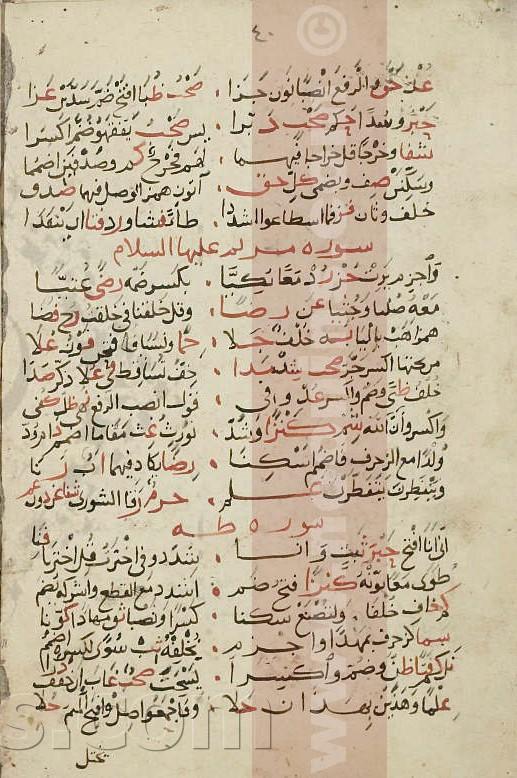 ٤٠
عد حق والرفع انصبا نون جزا . صحب ظبا افتح ضم سدين عزا
حبر وسدا حكم صحب دبرا . يس صحب يفقهوا ضم اكسرا
شفا وخرجا قل خراجا فيهما . لهم فخرج كم وصدفين اضمما
وسكنن صف وبضمي كل حق . آتون همز الوصل فيهما صدق
خلف وثان فز فما اسطاعوا اشددا . طاء فشا ورد فتا ان ينفدا
سورة مريم عليها السلام
واجزم يرث حز رد معا بكيا . بكسر ضمه رضى عتيا
معه صليا وجثيا عن رضا . وقل خلقنا في خلقت رح فضا
همز اهب باليا به خلف جلا . حما ونسيا فافتحن فوز علا
من تحتها اكسر جر صحب شذ مدا . خف تساقط في علا ذكر صدا
خلف ظبى وضم واكسر عد وفي . قول انصب الرفع نهى ظل كفي
واكسر وان الله شم كنزا وشد . نورث غث مقاما اضمم دام ود
ولدا مع الزخرف فاضمم اسكنا . رضا يكاد فيهما اب رنا
وينفطرن يتفطرن علم . حرم رقا الشورى شفا عن دون عم
سورة طه
اني انا افتح حبر ثبت وانا . شدد وفي اخترت قل اخترنا فنا
طوى معا نونه كنزا فتح ضم . اشدد مع القطع واشركه يضم
كم خاف خلفا . ولتصنع سكنا . كسرا ونصبا ثق مهادا كونا
سما كزخرف بمهدا واجزم . نخلفه ثب سوى بكسره اضمم
نل كم فتا ظن وضم واكسرا . يسحت صحب غاب ان خفف درا
علما وهذين بهذان حلا . فاجمعوا صل وافتح الميم حلا